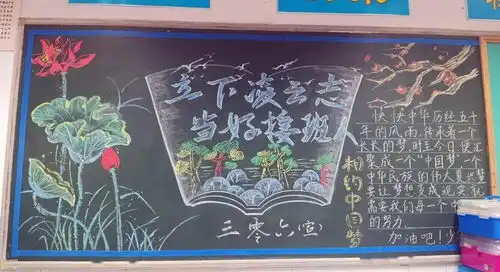 立下凌云志
当好接班人
三零六(宣)
相约中国梦
快快中华历经五千
年的风雨,传承着一个
长长的梦,时至今日便汇
聚成一个"中国梦"一个
中华民族的伟大复兴梦
要让梦想变成现实化
需要我们每一个中
的努力.
加油吧!少